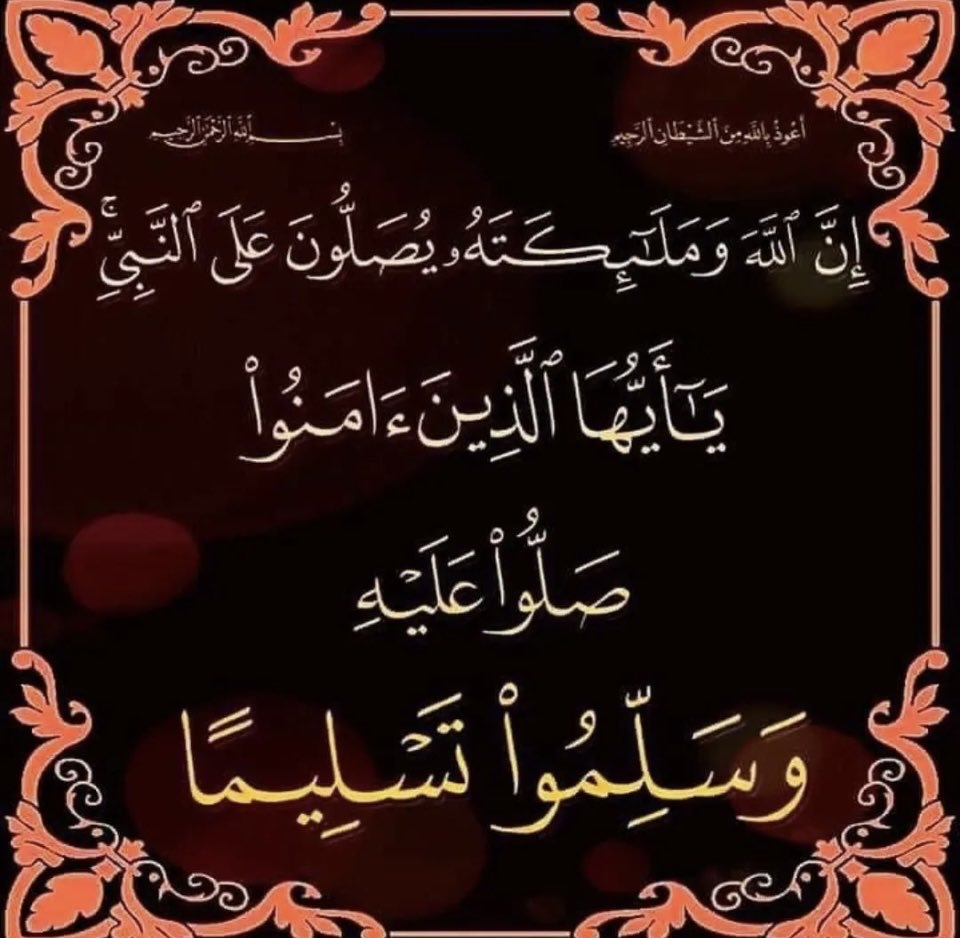 أَعُوذُ بِاللَّهِ مِنَ ٱلشَّيْطَانِ ٱلرَّجِيمِ بِسْمِ ٱللَّهِ ٱلرَّحْمَٰنِ ٱلرَّحِيمِ
إِنَّ ٱللَّهَ وَمَلَٰٓئِكَتَهُۥ يُصَلُّونَ عَلَى ٱلنَّبِيِّۚ
يَٰٓأَيُّهَا ٱلَّذِينَ ءَامَنُوا۟
صَلُّوا۟ عَلَيْهِ
وَسَلِّمُوا۟ تَسْلِيمًا